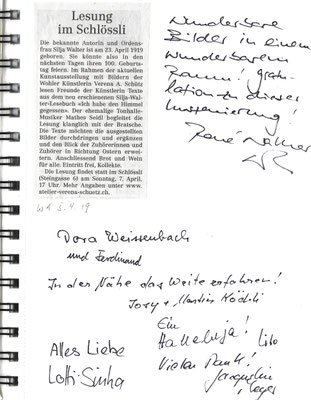 Lesung
im Schlössli
Die bekannte Autorin und Ordens-
frau Silja Walter ist am 23. April 1919
geboren. Sie könnte also in den
nächsten Tagen ihren 100. Geburts-
tag feiern. Im Rahmen der aktuellen
Kunstausstellung mit Bildern der
Wohler Künstlerin Verena A. Schütz
lesen Freunde der Künstlerin Texte
aus dem neu erschienenen Silja-Wal-
ter-Lesebuch «Ich habe den Himmel
gegessen». Der ehemalige Tonhalle-
Musiker Mathes Seidl begleitet die
Lesung klanglich mit der Bratsche.
Die Texte möchten die ausgestellten
Bilder durchdringen und ergänzen
und den Blick der Zuhörerinnen und
Zuhörer in Richtung Ostern erwei-
tern. Anschliessend Brot und Wein
für alle. Eintritt frei, Kollekte.
Die Lesung findet statt im Schlössli
(Steingasse 6) am Sonntag, 7. April,
17 Uhr. Mehr Angaben unter www.
atelier-verena-schuetz.ch.
5.4.19
Wunderbare
Bilder in einem
wunderbaren
Raum! Gratu-
lation zu dieser
Inszenierung!
René
Dora Weissenbach
und Ferdinand
In der Nähe das Weite erfahren!
Ein
Halleluja!
Vielen Dank!
Alles Liebe
Lotti